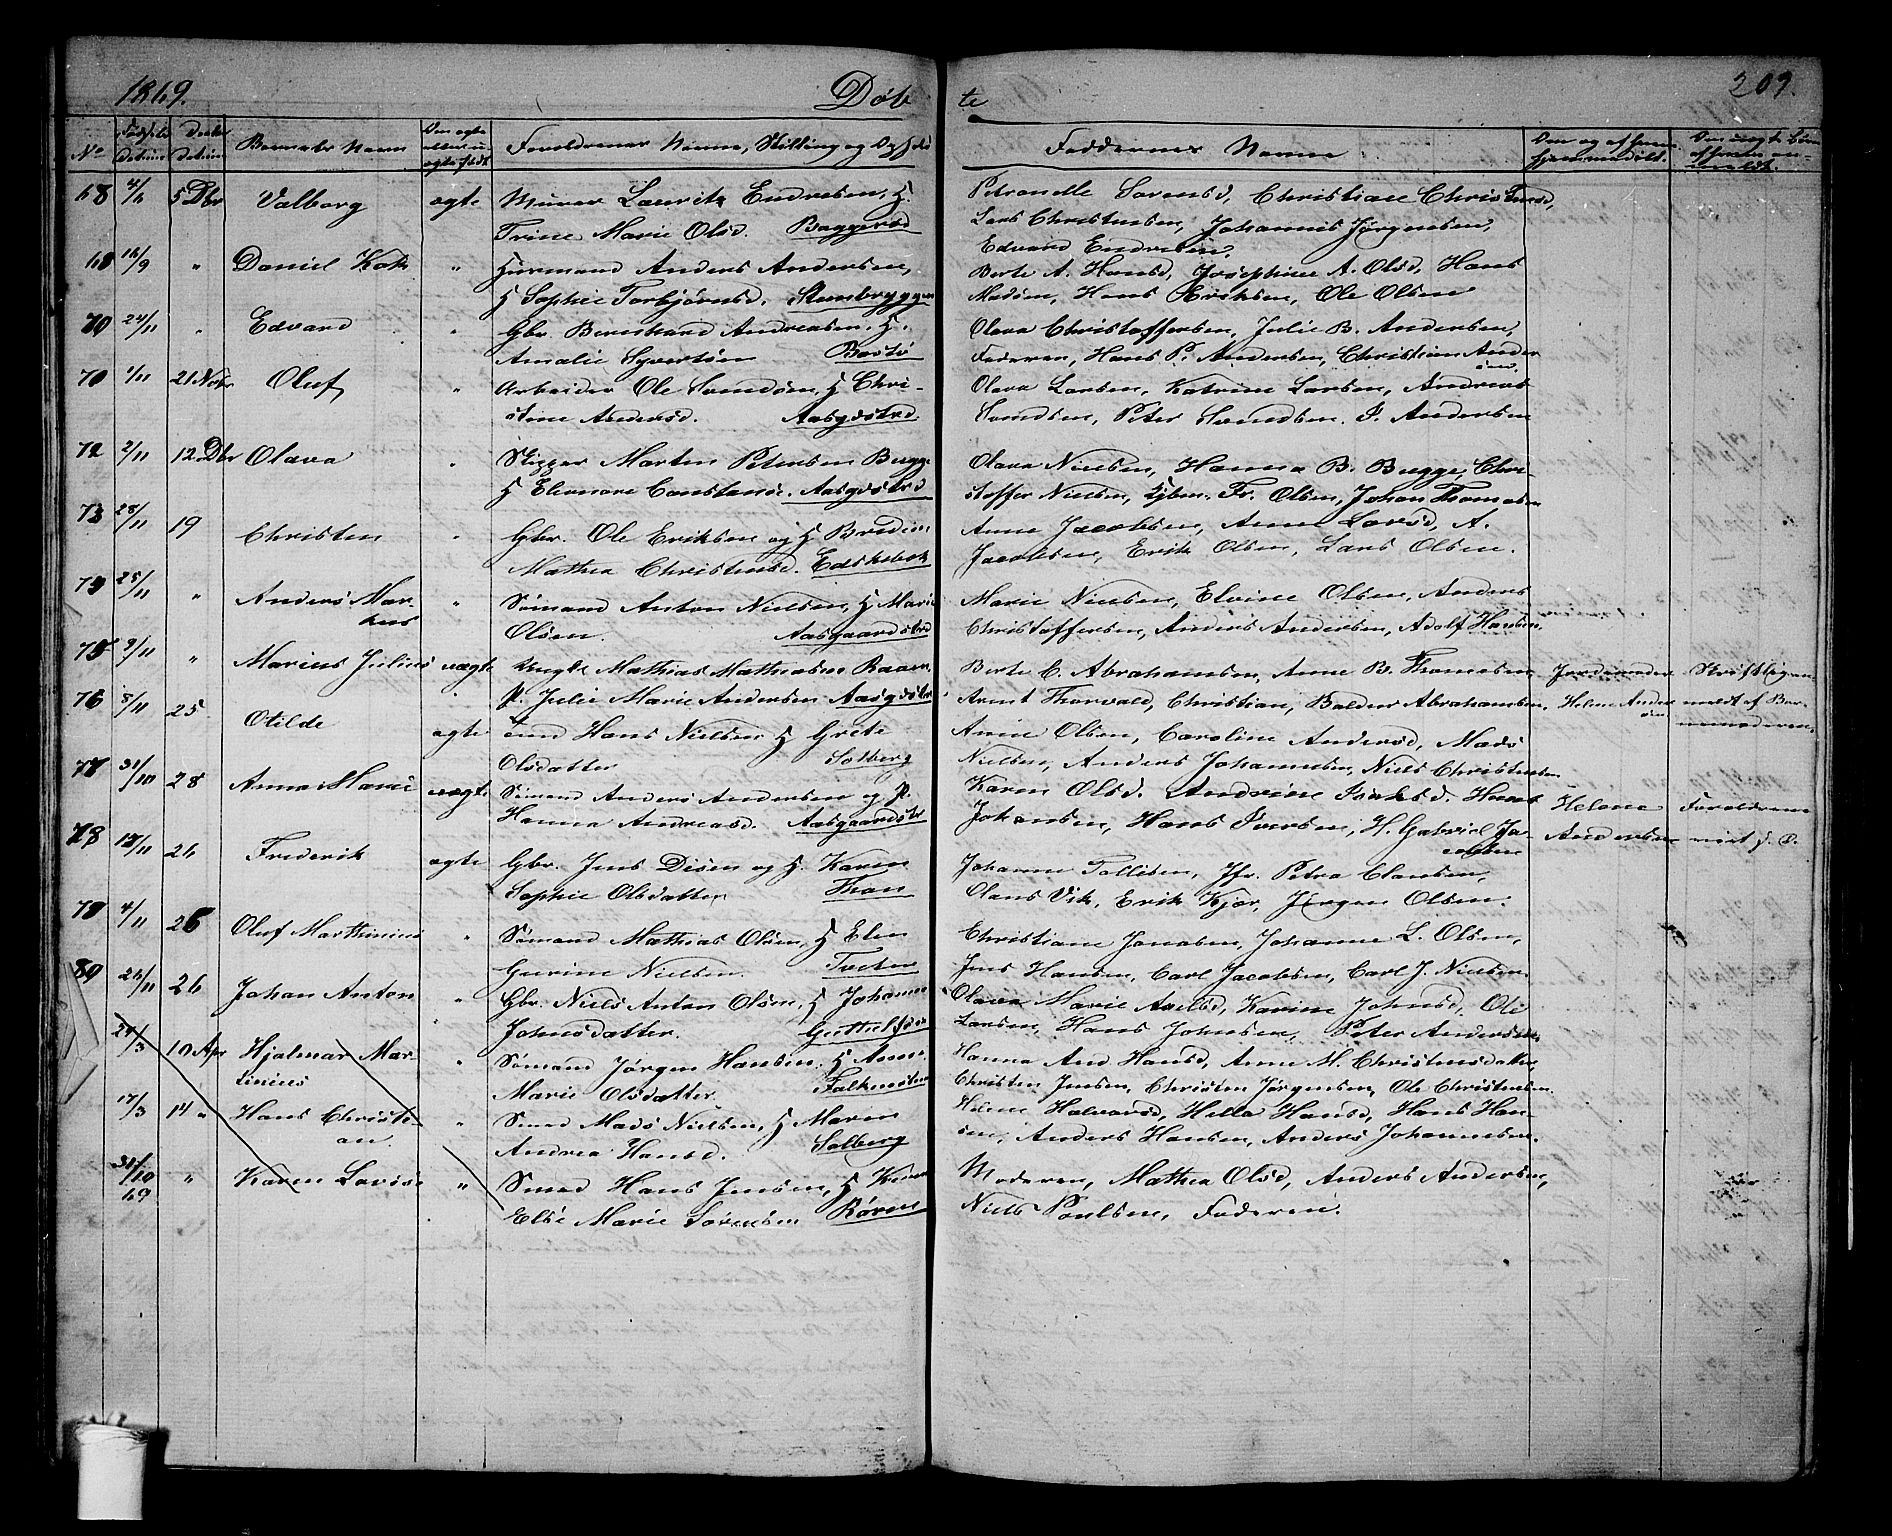 1869.
Døbte
209.
No
Fødsels Datum
Daabs Datum
Barnets Navn
Den ægte eller uægte født
Forældrenes Navne, Stilling og Ophold
Faddernes Navne
68 4/6 5 Dbr Valborg ægte Murer Lauritz Endresen, H.
Trine Marie Olsd. Baggerød
Petronelle Sorensd, Christiane Christensd,
Lars Christensen, Johannes Jørgensen,
Edvard Endresen.
68 16/9 " Daniel " Huusmand Anders Andersen,
H Sophie Torbjørnsd. Stenbryggen
Berte A. Hansd, Josephine A. Olsd, Hans
Madsen, Hans Eriksen, Ole Olsen
70 24/11 " Edvard " Gbr. Bernhard Andreasen, H.
Amalie Syvertsen Bastø
Olava Christoffersen, Julie B. Andersen,
Faderen, Hans P. Andersen, Christian Andersen.
70 1/11 21 Novbr Oluf " Arbeider Ole Svendsen, H Christine Andersd. Aasgdstrd
Olava Larsen, Katrine Larsen, Andreas
Svendsen, Peter Svendsen. P. Andersen
72 2/11 12 Dbr Olava " Skipper Morten Petersen Bugge
H Eleonore Constanse. Aasgdstrd
Olava Nielsen, Hanna B. Bugge, Christoffer Nielsen, Fr. Olsen, Johan Thomesen
73 28/11 19 Christen " Gbr. Ole Eriksen og H Bredine
Mathea Christensd. Esskebek
Anne Jacobsen, Anne Larsd, A.
Jacobsen, Erik Olsen, Lars Olsen.
79 25/11 " Anders Markus " Sømand Anton Nielsen, H Marie
Olsen. Aasgaardstrd
Marie Nielsen, Elvine Olsen, Anders
Christoffersen, Anders Andersen, Adolf Hansen,
75 9/11 " Marius Julius uægte Ungk. Mathias Mathiasen
P. Julie Marie Andersen Aasgdstrd
Berte C. Abrahamsen, Anne B. Thomesen
Arent Thorvald, Christian, Balder Abrahamsen.
Jordemoder
Helene Andersen
Skriftlig anmeldt af Barnemoderen.
76 8/11 25 Otilde ægte Smd Hans Nielsen H Grete
Olsdatter Solberg
Anne Olsen, Caroline Andersd, Mads
Nielsen, Anders Johannesen, Niels Christensen
77 31/10 28 Anna Marie uægte Sømand Anders Andersen og P.
Hanna Andreasd. Aasgaardstr
Karen Olsd. Andrine Isaksd. Hans
Johansen, Hans Iversen, H. Gabriel Jacobsen
Helene
Andersen
Forældrene
78 12/11 26 Frederik ægte Gbr. Jens Disen og H. Karen
Sophie Olsdatter Thon
Johanne Tollesen, Jfr. Petra Clausen,
Olaus Vik, Erik Kjær, Jørgen Olsen.
79 4/11 26 Oluf Marthinius " Sømand Mathias Olsen, H Elen
Gurine Nielsen.
Christiane Jonasen, Johanne L. Olsen,
Jens Hansen, Carl Jacobsen, Carl J. Nielsen.
80 26/11 26 Johan Anton " Gbr. Niels Anton Olsen, H Johanne
Johnsdatter.
Olava Marie Axelsd, Karine Johnsd, Ole
Larsen, Hans Johnsen, Peter Andersen
24/3 10 Apr Hjalmar Marinius " Sømand Jørgen Hansen, H Anne
Marie Olsdatter. Falkensten
Hanna And Hansd, Anne M. Christensdatter,
Christen Jensen, Christen Jørgensen, Ole Christensen
17/3 14 " Hans Christian " Smd Mads Nielsen, H Maren
Andrea Hansd. Solberg
Helene Halvorsd, Hella Hansd, Hans Hansen, Anders Hansen, Anders Johannesen.
31/10 69 " Karen Lovise " Smd Hans Jensen, H Karen
Else Marie Sørensen Røren
Moderen, Mathea Olsd, Anders Andersen,
Niels Poulsen, Faderen.